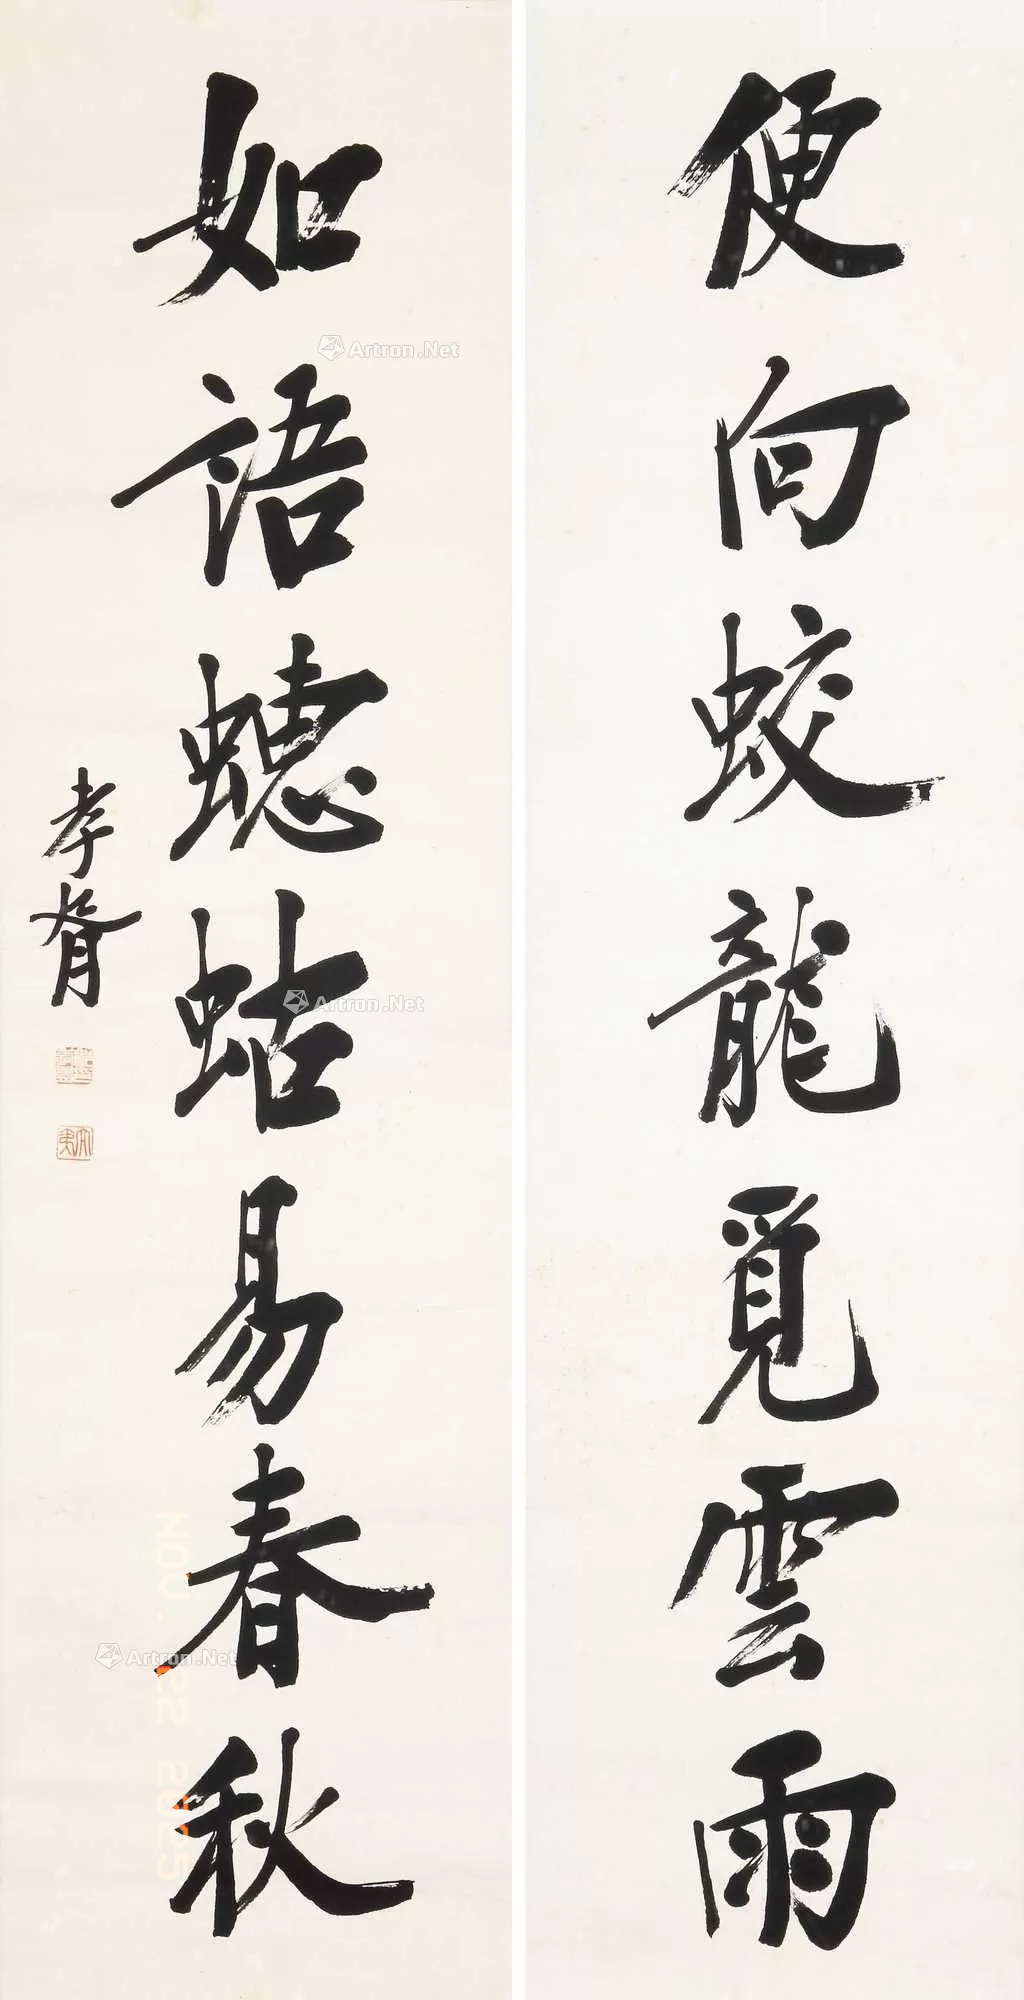 便向蛟龍覓雲雨
如語蟪蛄易春秋
孝胥
Artron.Net
Artron.Net
Artron.Net